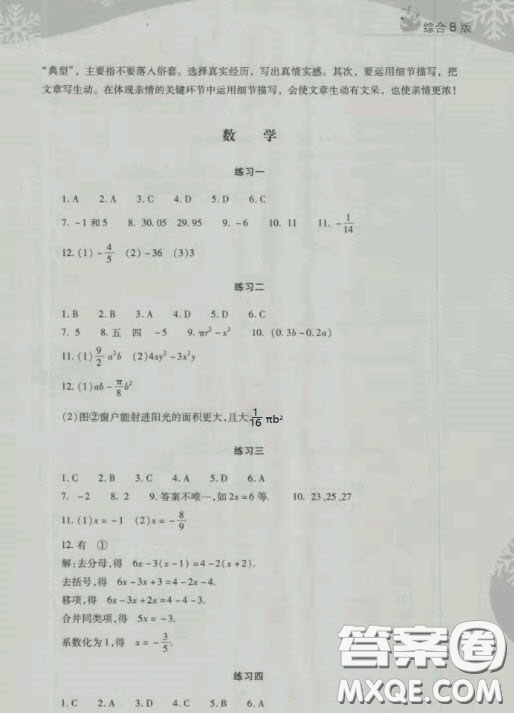 综合B版
“典型”，主要指不要落入俗套。选择真实经历，写出真情实感。其次，要运用细节描写，把
文章写生动。在体现亲情的关键环节中运用细节描写，会使文章生动有文采，也使亲情更浓！
数 学
练习一
1. A 2. A 3. C 4. D 5. D 6. C
7. -1和5 8. 30.05 29.95 9. -6 10. 11 11. -1/14
12. (1) -4/5 (2) -36 (3)3
练习二
1. B 2. B 3. A 4. D 5. A 6. C
7. 5 8. 五 四 -5 9. πr²-x² 10. (0.3b-0.2a)
11. (1) 9/2 a³b (2)4xy²-3x²y
12. (1)ab-π/8 b²
(2)图②窗户能射进阳光的面积更大,且大 1/16 πb²
练习三
1. C 2. B 3. C 4. D 5. D 6. C
7. -2 8. 2 9. 答案不唯一,如2x=6等. 10. 23,25,27
11. (1)x=-1 (2)x=-8/9
12. 有 ①
解:去分母,得 6x-3(x-1)=4-2(x+2).
去括号,得 6x-3x+3=4-2x-4.
移项,得 6x-3x+2x=4-4-3.
合并同类项,得 5x=-3.
系数化为1,得 x=-3/5.
练习四
1. C 2. A 3. D 4. A 5. D 6. C
答案卷
MXQE.COM